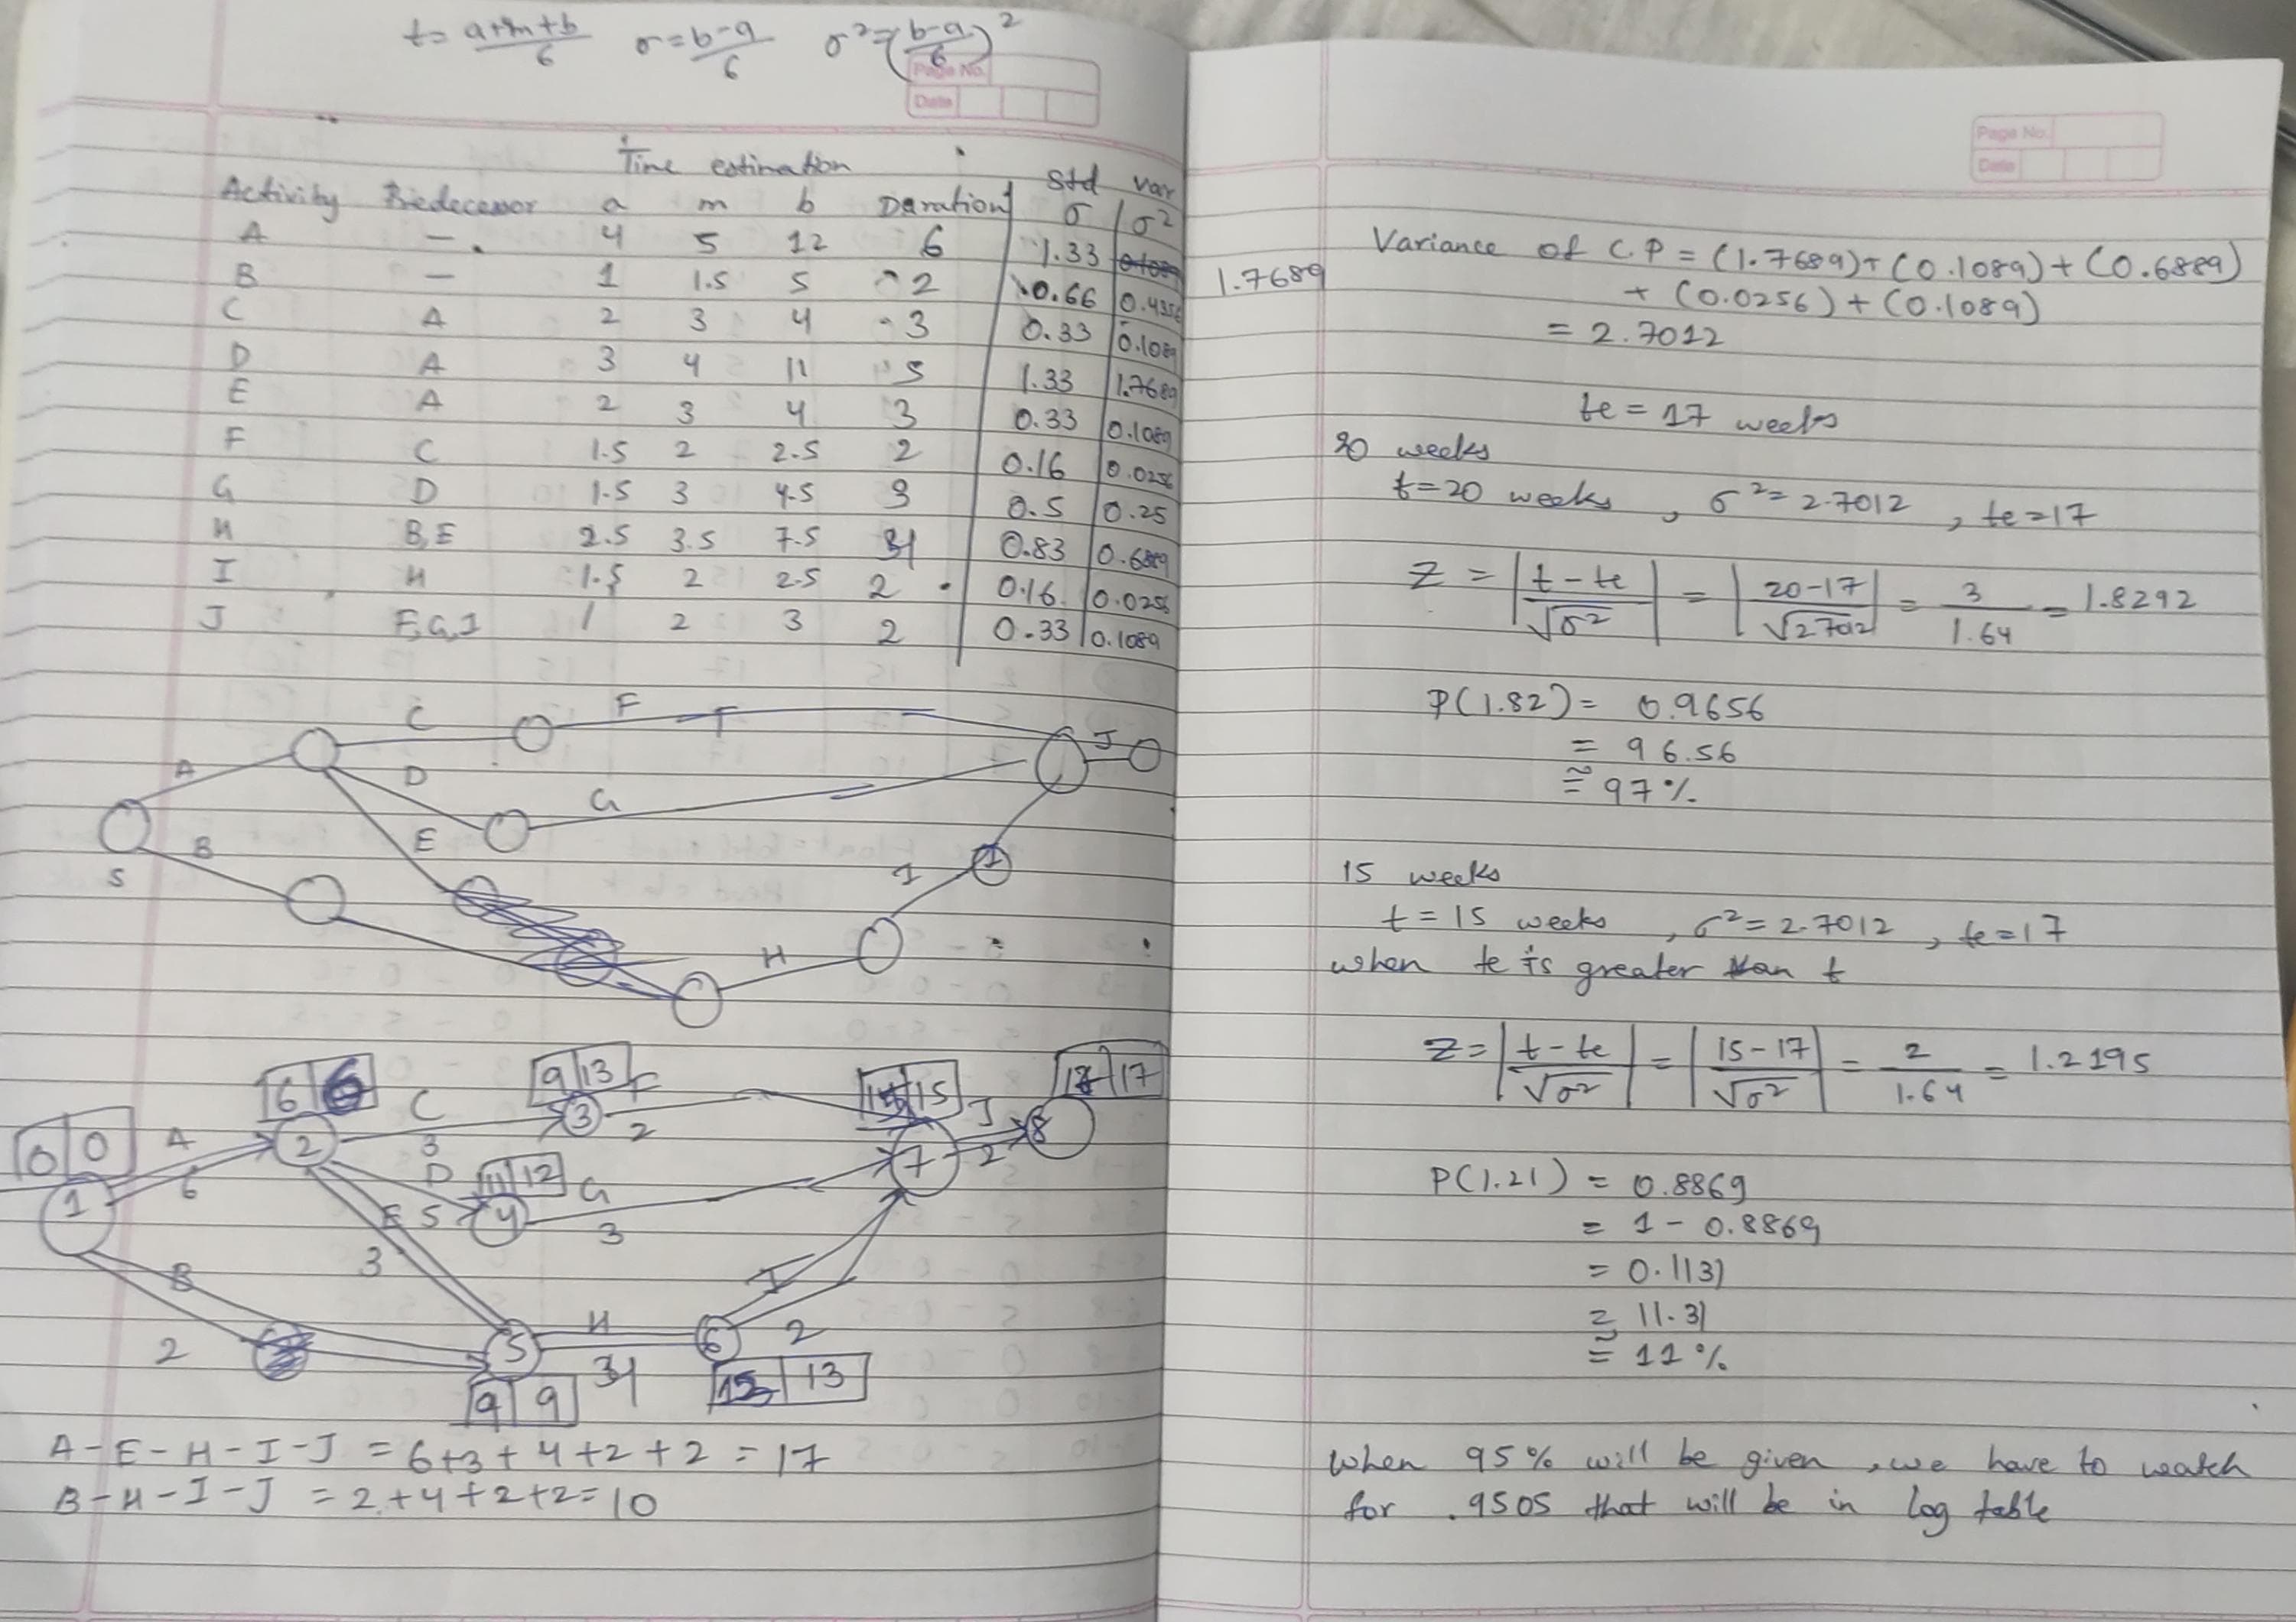 t= a+4m+b/6 σ=b-a/6 σ²=(b-a/6)²
Page No.
Date
Time estimation
Activity Predecessor a m b Duration Std σ Var σ²
A - 4 5 12 6 1.33 1.7689
B - 1 1.5 5 2 0.66 0.4356
C A 2 3 4 3 0.33 0.1089
D A 3 4 11 5 1.33 1.7689
E A 2 3 4 3 0.33 0.1089
F C 1.5 2 2.5 2 0.16 0.0256
G D 1.5 3 4.5 3 0.5 0.25
H B,E 2.5 3.5 7.5 4 0.83 0.6889
I H 1.5 2 2.5 2 0.16 0.0256
J F,G,I 1 2 3 2 0.33 0.1089
C F
A D G J
B E I
S
H
6 9 13 F 15 17
0 0 A C 3 J 8
6 2 3 2 7 2
1 D 11 12 G
E 5 4 3
3
B I
2 5 H 6 2
4 13
9 9
A-E-H-I-J = 6+3+4+2+2 = 17
B-H-I-J = 2+4+2+2=10
Page No.
Date
Variance of C.P = (1.7689)+(0.1089)+(0.6889)
+ (0.0256)+(0.1089)
= 2.7012
te = 17 weeks
20 weeks
t=20 weeks, σ²=2.7012, te=17
Z = |t-te/√σ²| = |20-17/√2.7012| = 3/1.64 = 1.8292
P(1.82) = 0.9656
= 96.56
≅ 97%
15 weeks
t=15 weeks, σ²=2.7012, te=17
when te is greater than t
Z=|t-te/√σ²| = |15-17/√σ²| = 2/1.64 = 1.2195
P(1.21) = 0.8869
= 1 - 0.8869
= 0.1131
= 11.31
≅ 11%
When 95% will be given, we have to watch
for .9505 that will be in log table